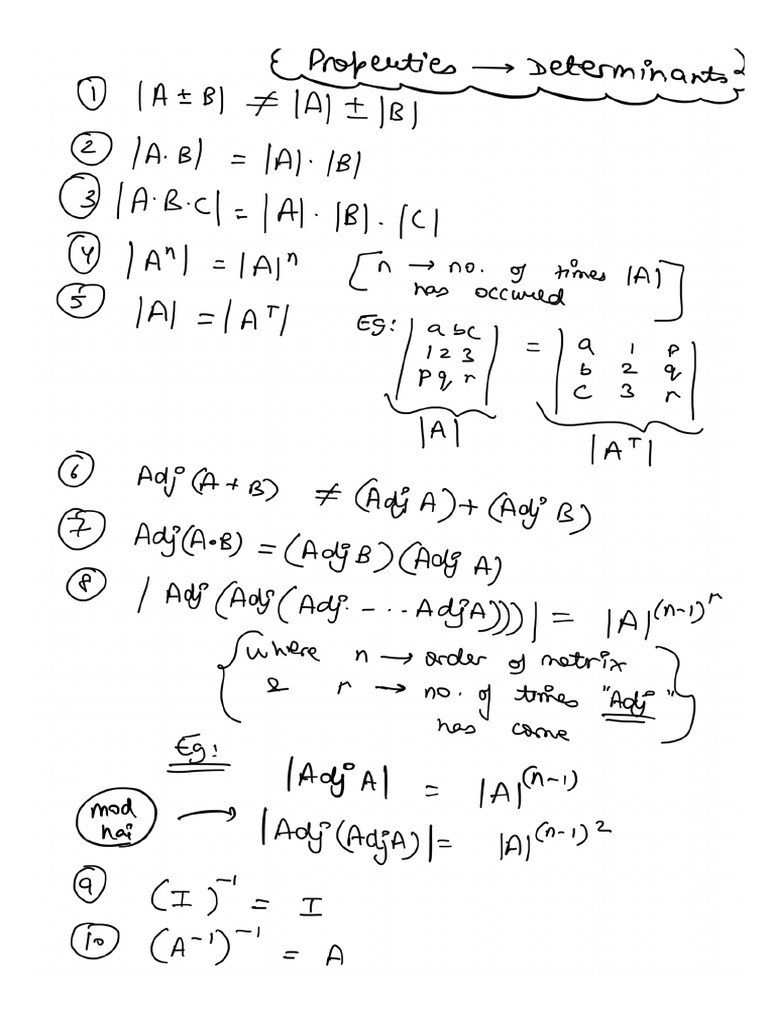 { Properties → Determinants }
① |A ± B| ≠ |A| ± |B|
② |A·B| = |A|·|B|
③ |A·B·C| = |A|·|B|·|C|
④ |Aⁿ| = |A|ⁿ [n → no. of times |A|
has occured]
⑤ |A| = |Aᵀ| Eg: |a b c| = |a 1 p|
|1 2 3| |b 2 q|
|p q r| |c 3 r|
|A| |Aᵀ|
⑥ Adj (A + B) ≠ (Adj A) + (Adj B)
⑦ Adj(A·B) = (Adj B)(Adj A)
⑧ |Adj (Adj (Adj. - - .. AdjA)))| = |A|^(n-1)^r
{where n → order of matrix
& r → no. of times "Adj"
has come}
Eg: |Adj A| = |A|^(n-1)
mod hai → |Adj (AdjA)| = |A|^(n-1)^2
⑨ (I)⁻¹ = I
⑩ (A⁻¹)⁻¹ = A